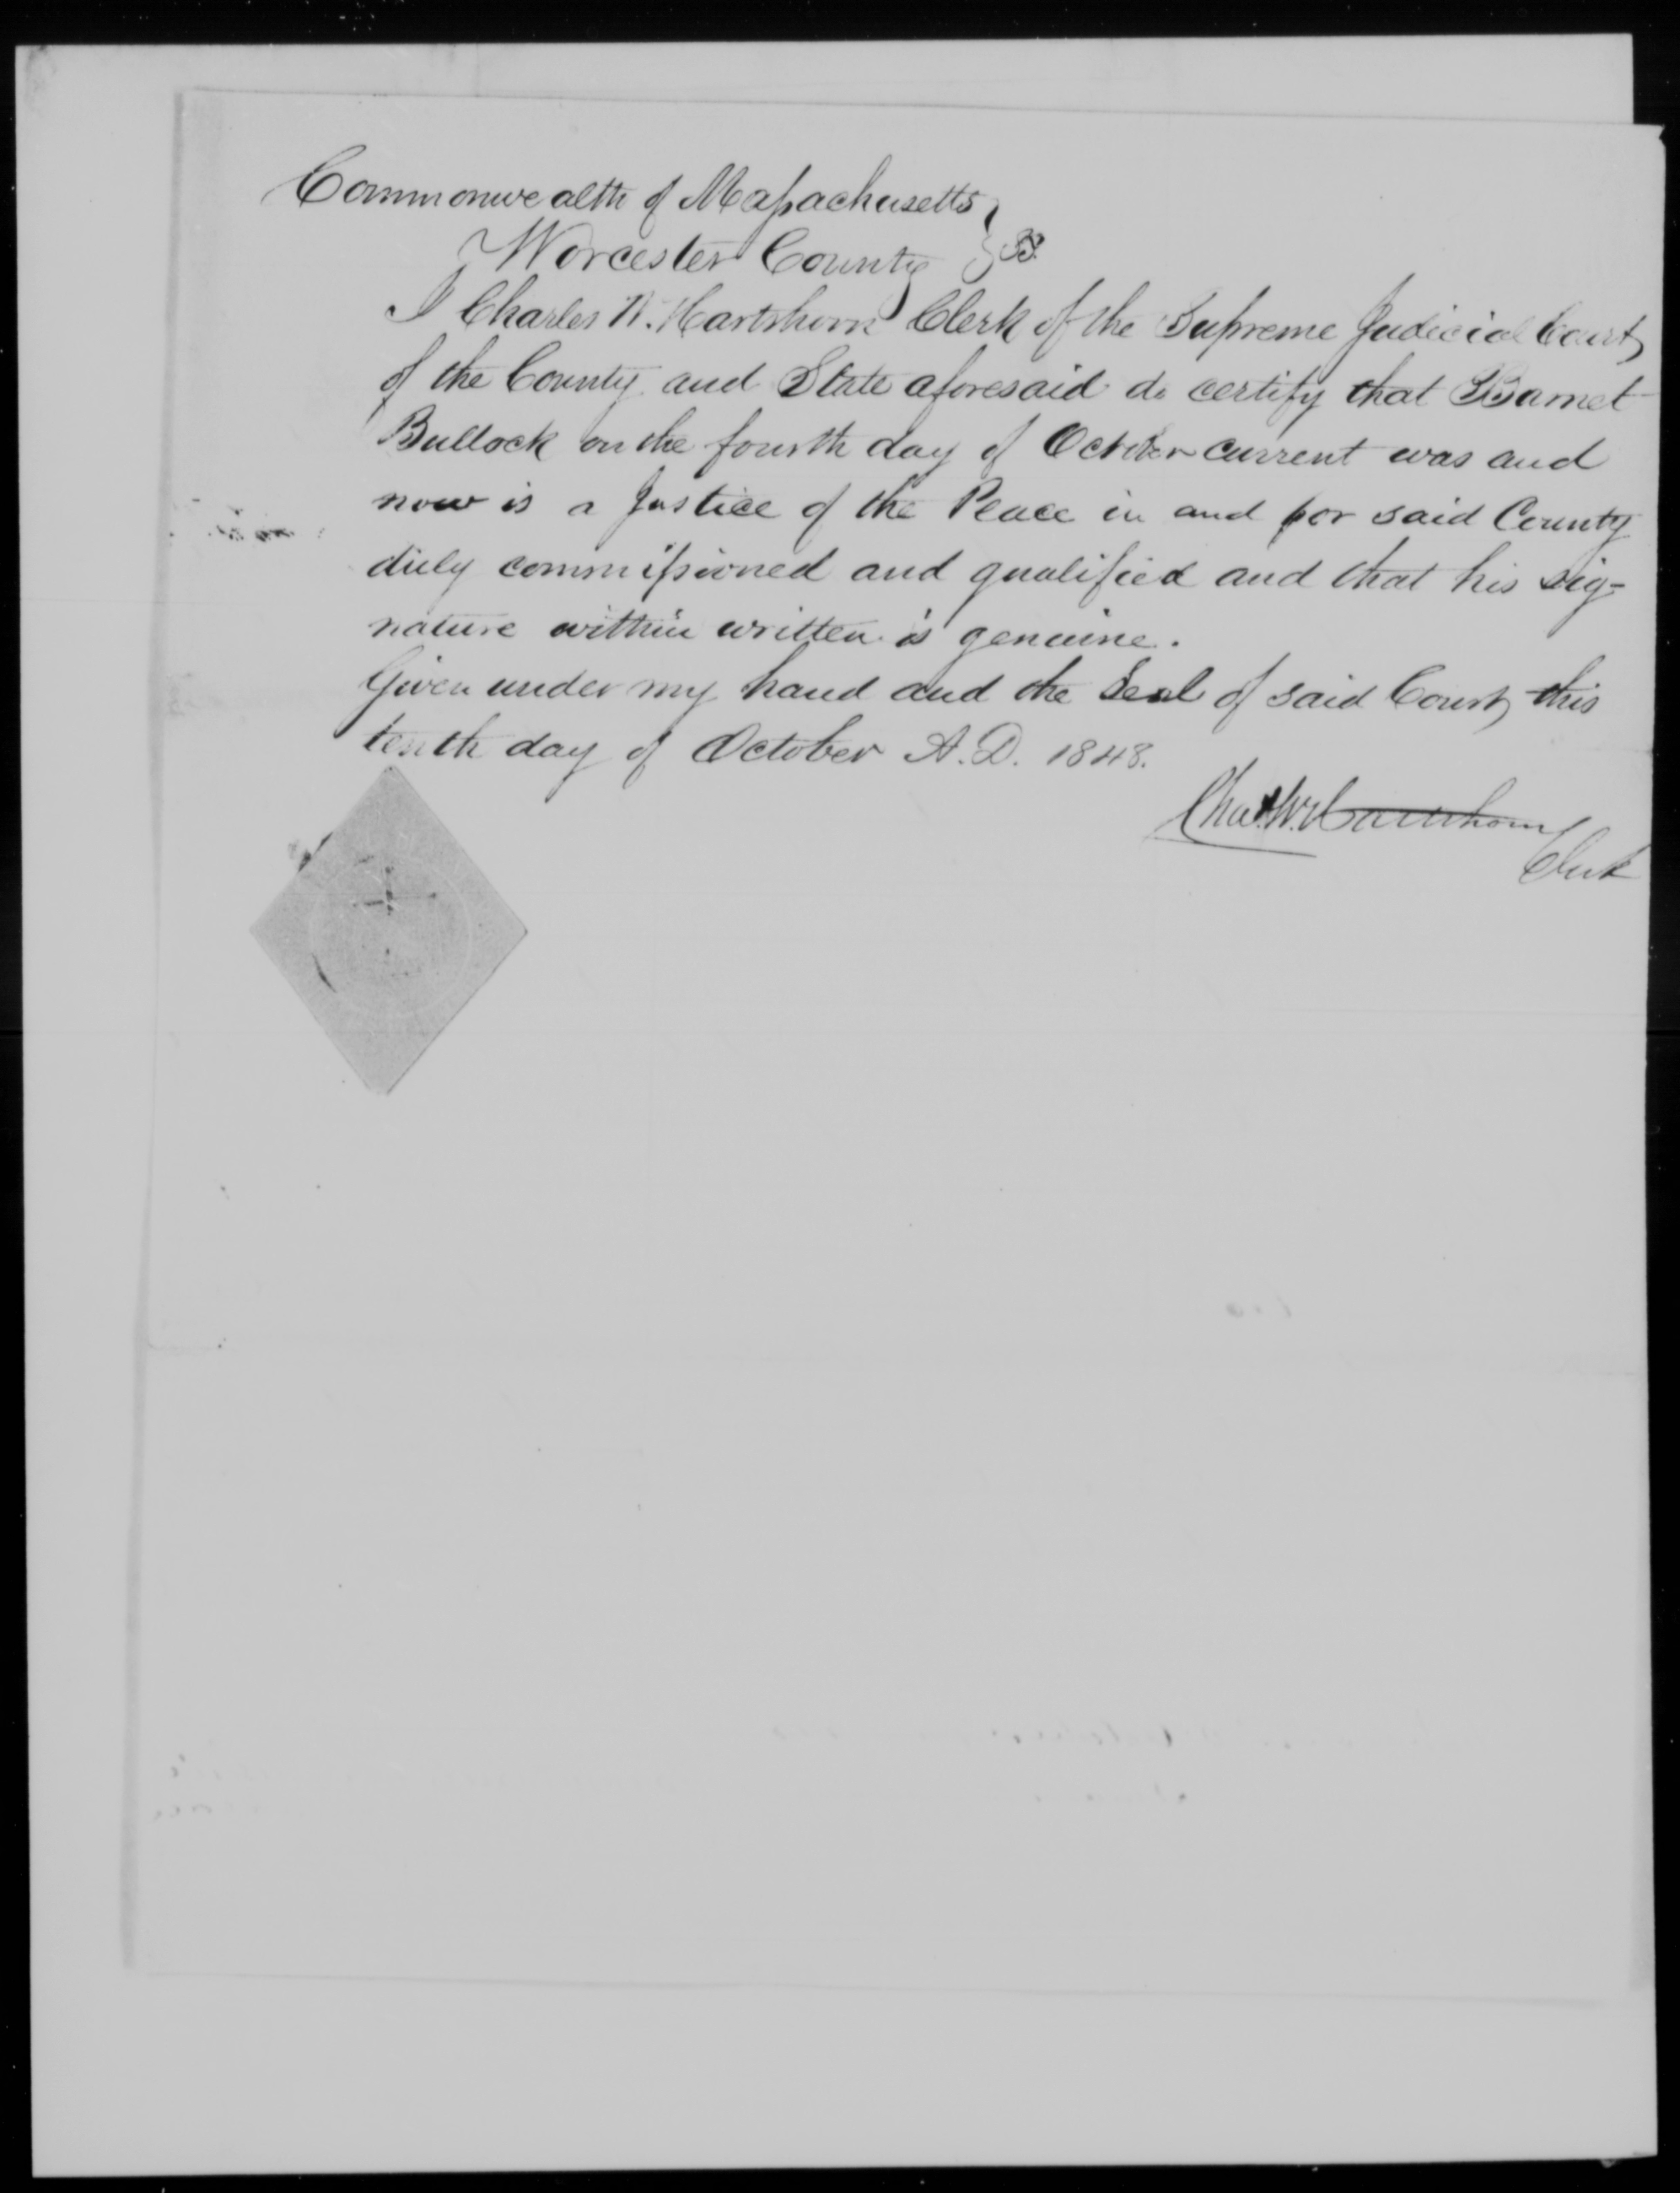 Commonwealth of Massachusetts
Worcester County } ss.
I Charles W. Hartshorn Clerk of the Supreme Judicial Court
of the County and State aforesaid do certify that Barnet
Bullock on the fourth day of October current was and
now is a Justice of the Peace in and for said County
duly commissioned and qualified and that his sig-
nature within written is genuine.
Given under my hand and the Seal of said Court, this
tenth day of October A.D. 1848.
Chas. W. Hartshorn
Clerk